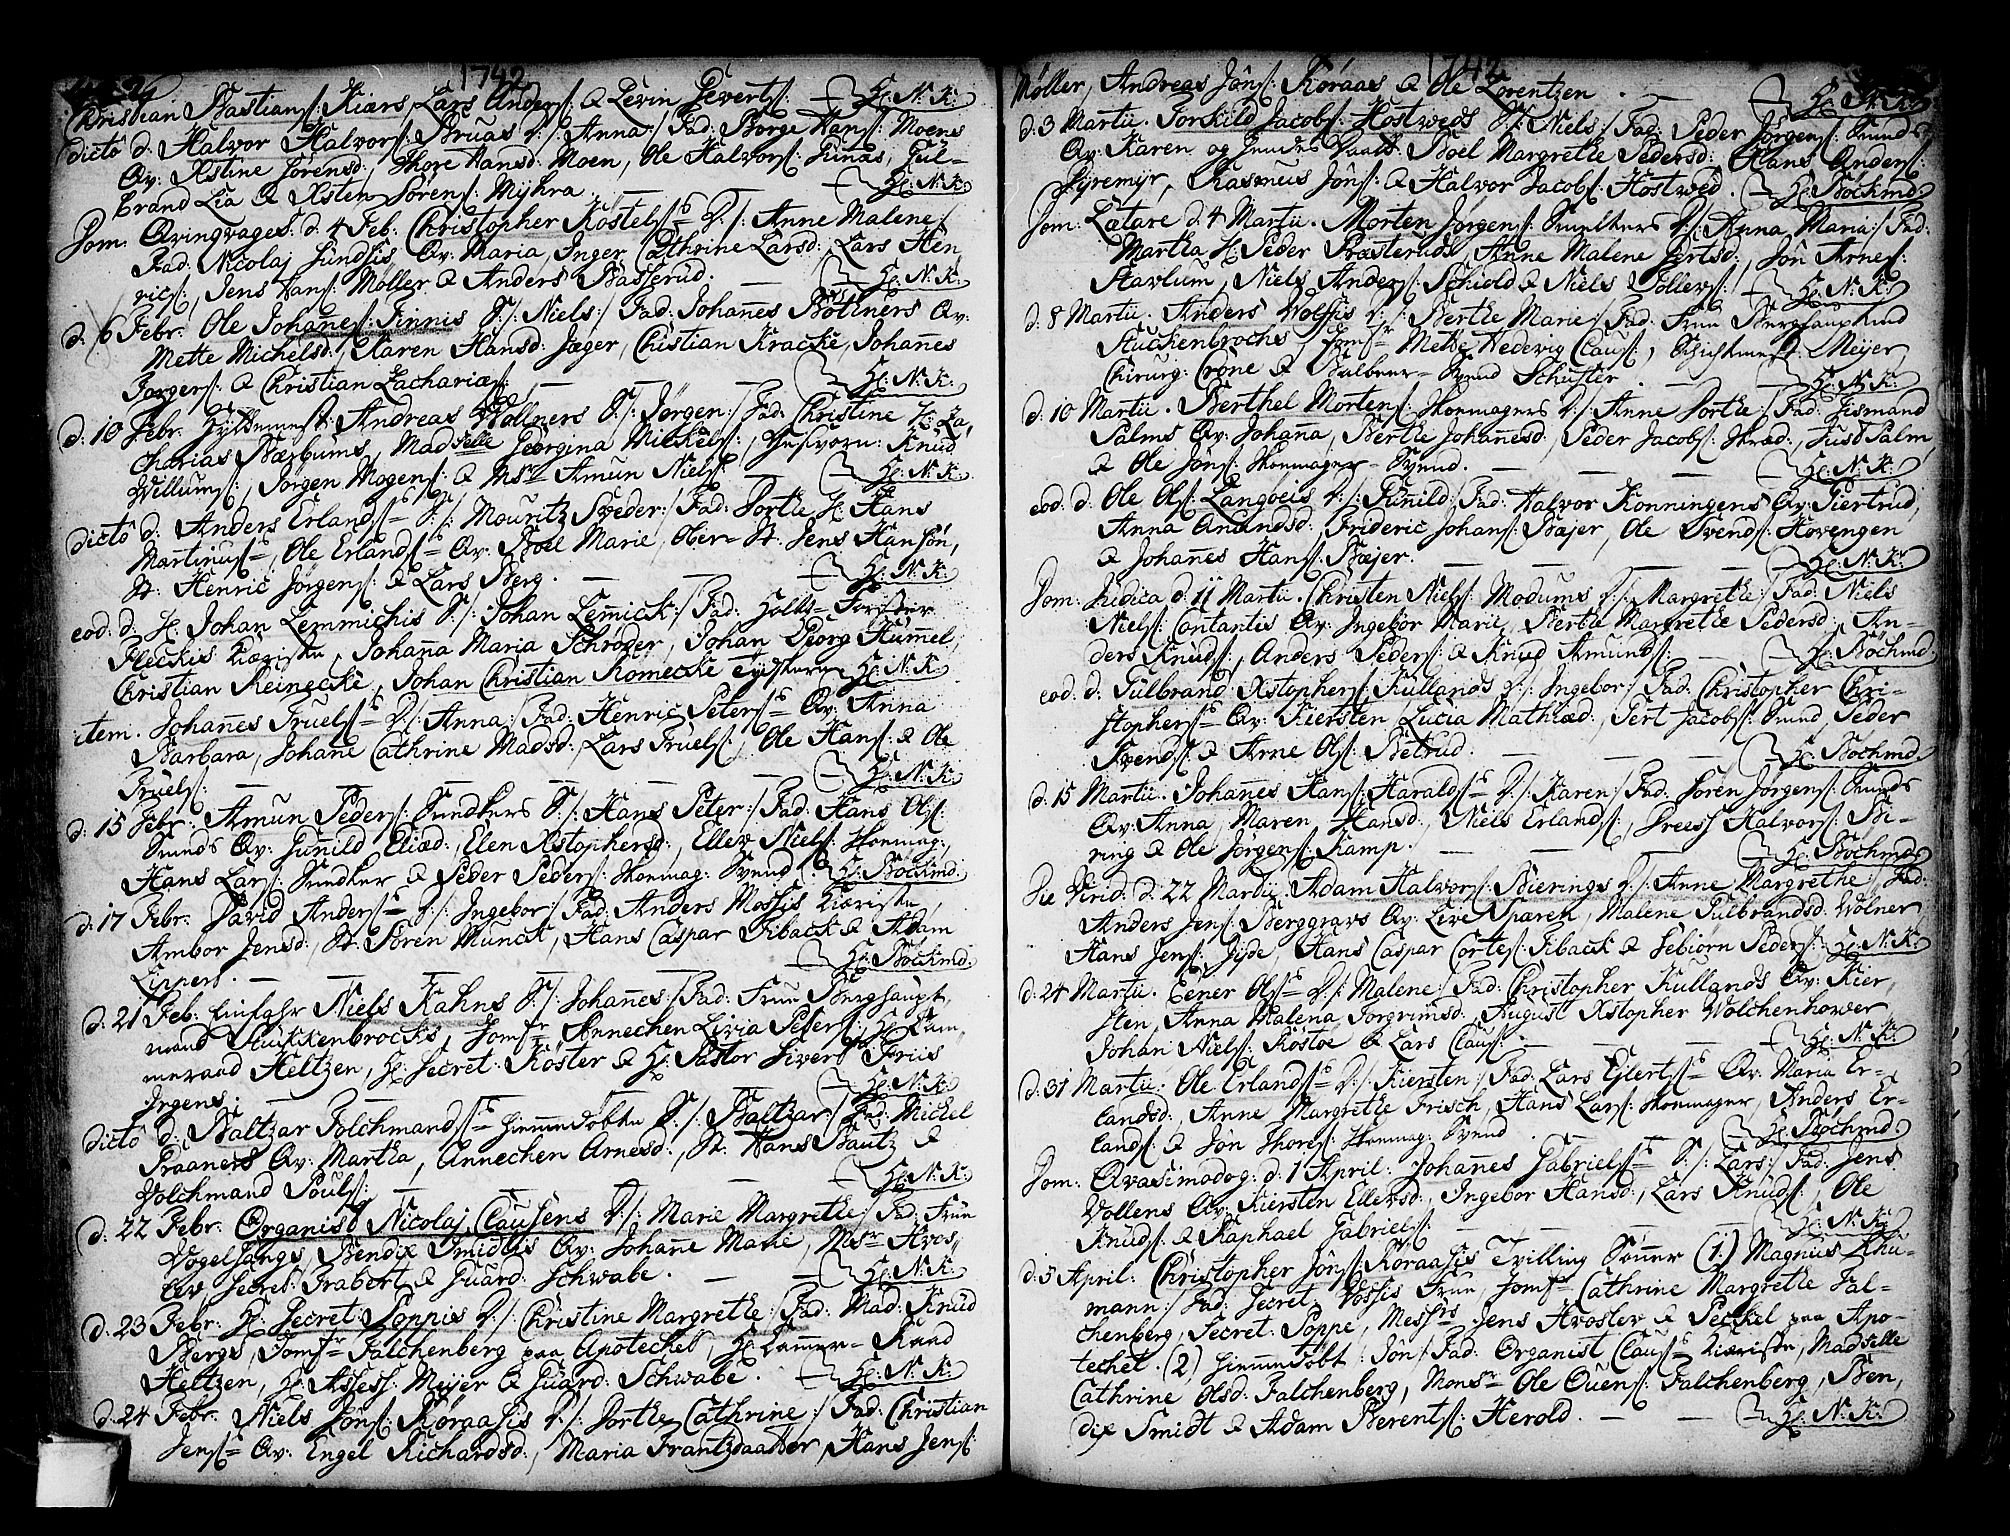 1742
Christian Bastians: Kiærs, Lars Anders: & Levin Geverts: H: N: K:
dicto d: Halvor Halvors: Bruas D:/: Anna:/ Fad: Børge Hans: Moens
Qv: Xstine Sørensd:, Thore Hansd: Moen, Ole Halvors: Funas, Gul-
brand Lia & Xsten Sørens: Myhra. H: N: K:
Dom: Qvinqvages: d: 4 Feb: Christopher Kostels: D:/: Anne Malene:/
Fad: Nicolaj Sundsis Qv: Maria, Inger Cathrine Larsd: Lars Hen-
rics:, Jens Hans: Møller & Anders Basserud. H: N: K:
d: 6 Febr: Ole Johanes: Finnis S:/: Niels:/ Fad: Johannes Bollners Qv:
Mette Michelsd:, Karen Hansd: Jæger, Christian Kracke, Johannes
Jørgens: & Christian Zacharias: H: N: K:
d: 10 Febr: Hyttemest: Andreas Wollners S:/: Jørgen:/ Fad: Christine H: Za,
charias Bærbums, Madselle Georgina Michels:, Gesvorn: Knud
Willums:, Jørgen Mogens: & Msr Amun Niels: H: N: K:
dicto d: Anders Erlands: S:/: Mouritz Sveder:/ Fad: Dortke H: Hans
Martinus:, Ole Erlands: Qv: Boel Marie, Ober-St: Jens Hansøn,
St: Henric Jørgens: & Lars Berg. H: N: K:
eod: d: H: Johan Lemmichis S:/: Johan Lemmick:/ Fad: Holtz-Førster
Fleckis Kæriste, Johanna Maria Schrøder, Johan Georg Kummel,
Christian Reinecke, Johan Christian Romecke Tydskere H: N: K:
item. Johannes Truels: D:/: Anna:/ Fad: Henric Peters: Qv: Anna
Barbara, Johane Cathrine Madsd: Lars Truels:, Ole Hans: & Ole
Truels: H: N: K:
d: 15 Febr: Amun Peders: Smedkers S:/: Hans Peter:/ Fad: Hans Ols:
Smeds Qv: Gunild Eliæd:, Elen Xstophersd:, Ellev Niels: Skomag:,
Hans Lars: Smedker & Peder Peders: Skomag: Svend H: Bochmd:
d: 17 Febr: David Anders: D:/: Ingebor:/ Fad: Anders Mossis Kiæriste,
Ambor Jensd:, St: Søren Munck, Hans Caspar Tiback & Adam
Lippers. H: Bochmd:
d: 21 Feb: Einfahr Niels Kahns S:/: Johannes:/ Fad: Frue Berghaupt,
mand Stukkenbrocks, Jomfr Annechen Livia Peters:, H: Cam,
meraad Heltzen, H: Secret: Køster & H: Pastor Sivert Friis
Irgens: H: N: K:
dicto d: Baltzar Folchmands: hiemmedøbte S:/: Baltzar:/ Fad: Michel
Praaners Qv: Martha, Annechen Arnesd:, St: Hans Bautz &
Volchmand Pouls: H: N: K:
d: 22 Febr: Organist Nicolaj Clausens D:/: Marie Margrethe:/ Fad: Frue
Vogelsangs, Bendix Smidtis Qv: Johane Marie, Msr Hvos,
lev Secret: Trabert & Guard: Schwabe. H: N: K:
d: 23 Febr: H: Secret: Poppis D:/: Christine Margrethe:/ Fad: Mad: Knud
Bergs, Jomfr Falchenberg paa Apotechet, H: Cammer-Raad
Heltzen, H: Assess: Meijer & Guard: Schwabe. H: N: K:
d: 24 Febr: Niels Jøns: Røraasis D:/: Dortke Cathrine:/ Fad: Christian
Jens: Qv: Engel Richardsd:, Maria Frantzdaatter, Hans Jens:
1742
Møller, Andreas Jøns: Røraas & Ole Lorentzen. H: N: K:
d: 3 Martii. Torkild Jacobs: Hostveds S:/: Niels:/ Fad: Peder Jørgens: Smeds
Qv: Karen og Boel Margrethe Pedersd: Hans Anders:
Dyremyr, Rasmus Jøns: & Halvor Jacobs: Hostved. H: Bochmd:
Dom: Lætare d: 4 Martii. Morten Jørgens: Smelters D:/: Anna Maria:/ Fad:
Martha H: Peder Præsteruds, Anne Malene Gertsd:, Jøn Arnes:
Stavlum, Niels Anders: Schiold & Niels Tollevs: H: N: K:
d: 8 Martii. Anders Wolffis D:/: Berthe Marie:/ Fad: Frue Berghauptmd
Stuckenbrochs, Jomfr Mette Hedevig Claus:, Schichtmest: Meijer,
Chirurg: Crone & Balbeer-Svend Schuster. H: N: K:
d: 10 Martii. Berthel Mortens: Skomagers D:/: Anne Dorthe:/ Fad: Gismand
Palms Qv: Johanna, Berthe Johannesd:, Peder Jacobs: Skræd:, Just Palm,
& Ole Jøns: Skomager-Svend. H: N: K:
eod: d: Ole Ols: Langbeis D:/: Gunild:/ Fad: Halvor Konningens Qv: Giertrud,
Anna Anundsd: Frideric Johans: Bæjer, Ole Svends: Hovengen
& Johannes Hans: Bæjer. H: N: K:
Dom: Judica d: 11 Martii. Christen Niels: Modums D:/: Margrethe:/ Fad: Niels
Niels: Contantis Qv: Ingebor Marie, Berthe Margrethe Pedersd:, An-
ders Knuds:, Anders Peders: & Knud Amunds: H: Bochmd:
eod: d: Gulbrand Xstophers: Kullands D:/: Ingebor:/ Fad: Christopher Chri-
stophers: Qv: Kiersten, Lucia Mathiæd:, Gert Jacobs: Smed, Peder
Svends: & Arne Ols: Betrud. H: Bochmd:
d: 15 Martii. Johannes Hans: Haralds: D:/: Karen:/ Fad: Søren Jørgens: Smeds
Qv: Anna, Maren Hansd:, Niels Erlands:, Drees Halvors: Bi-
ring & Ole Jørgens: Kamp. H: Bochmd:
Die Virid: d: 22 Martii Adam Halvors: Bierings D:/: Anne Margrethe:/ Fad:
Anders Jens: Berggravs Qv: Live Sparen, Malene Gulbrandsd: Wolner
Hans Jens: Jyde, Hans Caspar Cortes: Tiback & Sebiørn Peders: H: N: K:
d: 24 Martii. Eener Ols: D:/: Malene:/ Fad: Christopher Kullands Qv: Kier,
sten, Anna Malena Torgrimsd:, August Xstopher Wolchenhower
Johan Niels: Kostoe & Lars Claus: H: N: K:
d: 31 Martii. Ole Erlands: D:/: Kiersten:/ Fad: Lars Ejlerts: Qv: Maria Er-
landsd:, Anne Margrethe Frisch, Hans Lars: Skomager, Anders Er-
lands: & Jøn Thors: Skomag: Svend. H: Bochmd:
Dom: Qvasimodog: d: 1 April: Johannes Gabriels: S:/: Lars:/ Fad: Jens
Vollens Qv: Kiersten Ellevsd:, Ingebor Hansd:, Lars Knuds:, Ole
Knuds: & Raphael Gabriels: H: N: K:
d: 5 April: Christopher Jøns: Røraasis Tvilling Sønner (1:) Magnus Thu-
mann:/ Fad: Secret: Vossis Frue, Jomfr Cathrine Margrethe Fal-
chenberg, Secret: Poppe, Messrs Jens Hvoslev & Peckel paa Apo-
techet. (2) hiemmedøbt: Jøn:/ Fad: Organist Claus: Kiæriste, Madselle
Cathrine Olsd: Falchenberg, Monsr Ole Ovens: Falchenberg, Ben,
dix Smidt & Adam Berents: Herold. H: N: K: